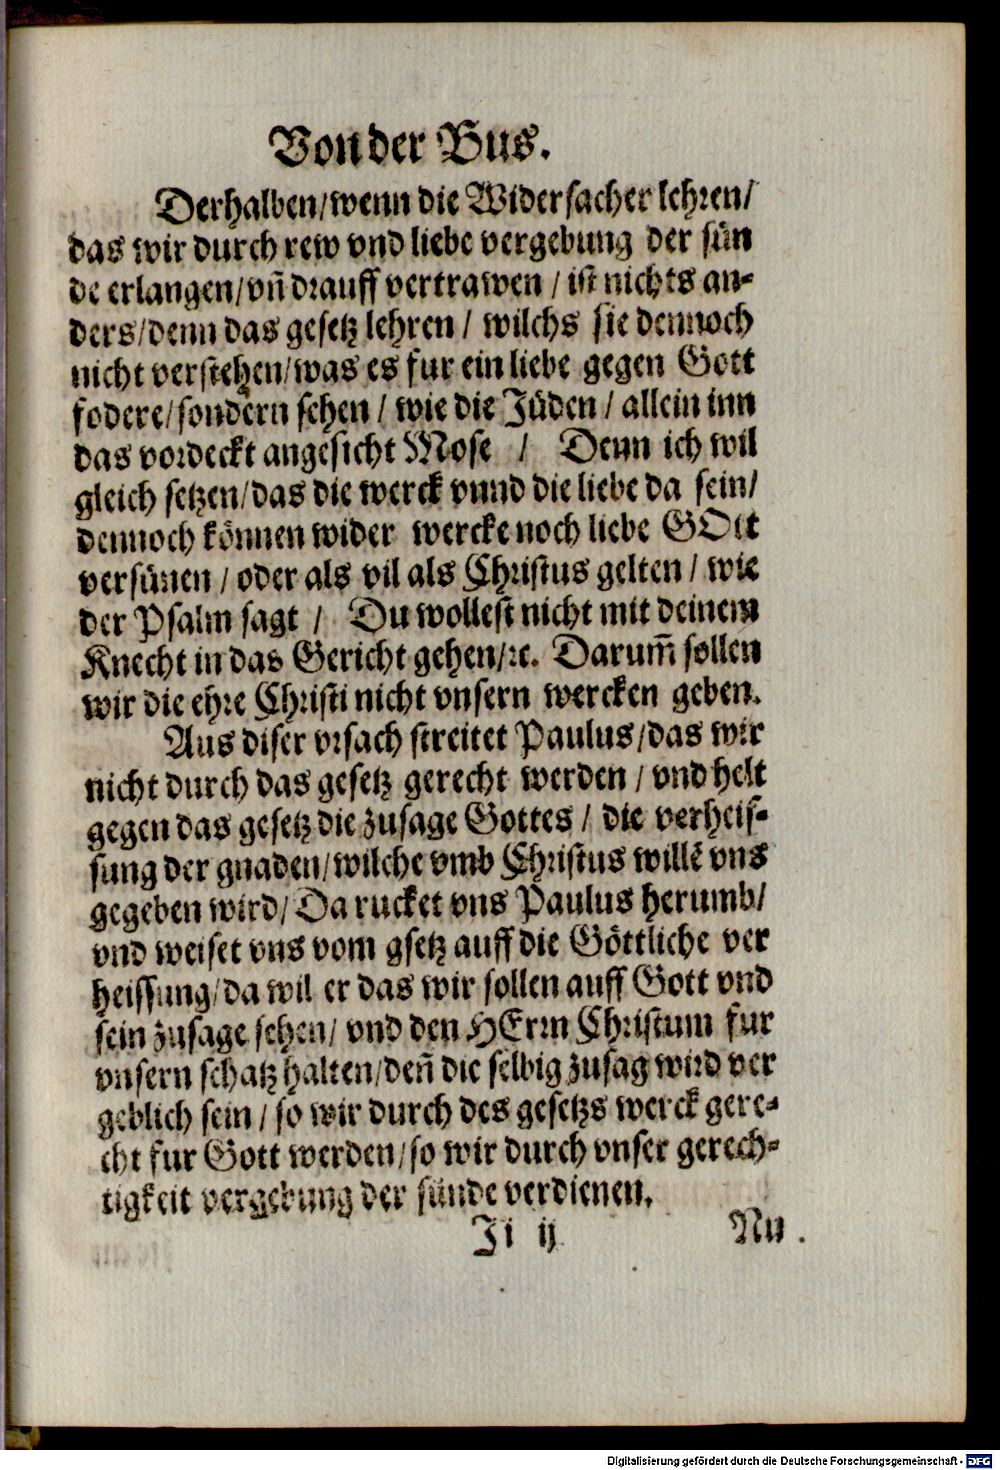 Von der Bus.
Derhalben/wenn die Widersacher lehren/
das wir durch rew vnd liebe vergebung der sün
de erlangen/vñ drauff vertrawen / ist nichts an-
ders/denn das gesetz lehren / wilchs sie dennoch
nicht verstehen/was es fur ein liebe gegen Gott
fodere/sondern sehen / wie die Jüden / allein inn
das vordeckt angesicht Mose / Denn ich wil
gleich setzen/das die werck vnnd die liebe da sein/
dennoch können wider wercke noch liebe GOtt
versünen / oder als vil als Christus gelten / wie
der Psalm sagt / Du wollest nicht mit deinem
Knecht in das Gericht gehen/ꝛc. Darum̃ sollen
wir die ehre Christi nicht vnsern wercken geben.
Aus diser vrsach streitet Paulus/das wir
nicht durch das gesetz gerecht werden / vnd helt
gegen das gesetz die zusage Gottes / die verheis-
sung der gnaden/wilche vmb Christus willẽ vns
gegeben wird/ Da rucket vns Paulus herumb/
vnd weiset vns vom gsetz auff die Göttliche ver
heissung/da wil er das wir sollen auff Gott vnd
sein zusage sehen/ vnd den HErrn Christum fur
vnsern schatz halten/deñ die selbig zusag wird ver
geblich sein / so wir durch des gesetzs werck gere-
cht fur Gott werden/so wir durch vnser gerech-
tigkeit vergebung der sünde verdienen.
Ji ij
Nu .
Digitalisierung gefördert durch die Deutsche Forschungsgemeinschaft - DFG